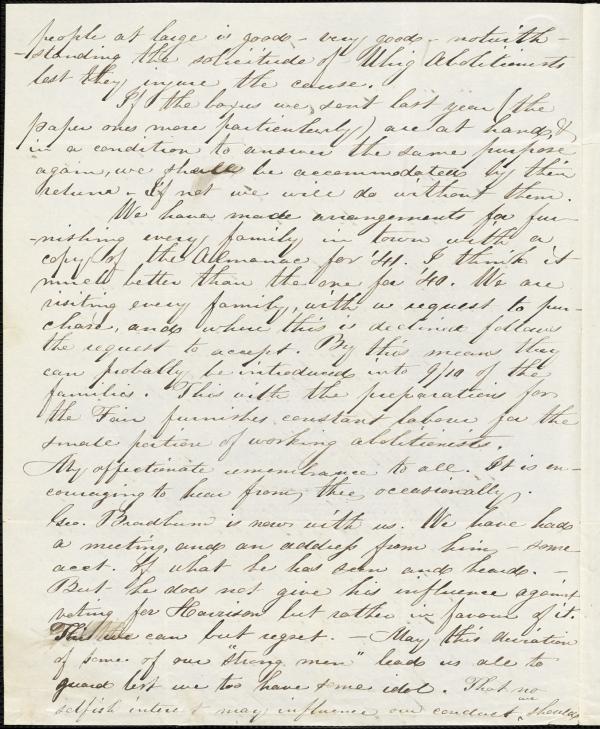 people at large is good - very good - notwith-
-standing the solicitude of Whig Abolitionists
lest they injure the cause.
If the boxes we sent last year (the
paper ones more particularly) are at hand, &
in a condition to answer the same purpose
again, we shall be accommodated by their
return - If not we will do without them.
We have made arrangements for fur-
-nishing every family in town with a
copy of the Almanac for '41. I think it
much better than the one for '40. We are
visiting every family, with a request to pur-
chase, and where this is declined follows
the request to accept. By this means they
can probably be introduced into 9/10 of the
families. This with the preparations for
the Fair furnishes constant labour for the
small portion of working abolitionists.
My affectionate remembrance to all. It is en-
couraging to hear from thee occasionally.
Geo. Bradburn is now with us. We have had
a meeting, and an address from him - some
acct. of what he has seen and heard. -
But he does not give his influence against
voting for Harrison but rather in favour of it.
This we can but regret. - May this
of some of our "strong men" lead us all to
guard lest we too have some idol. That no
selfish interest may influence our conduct, we should